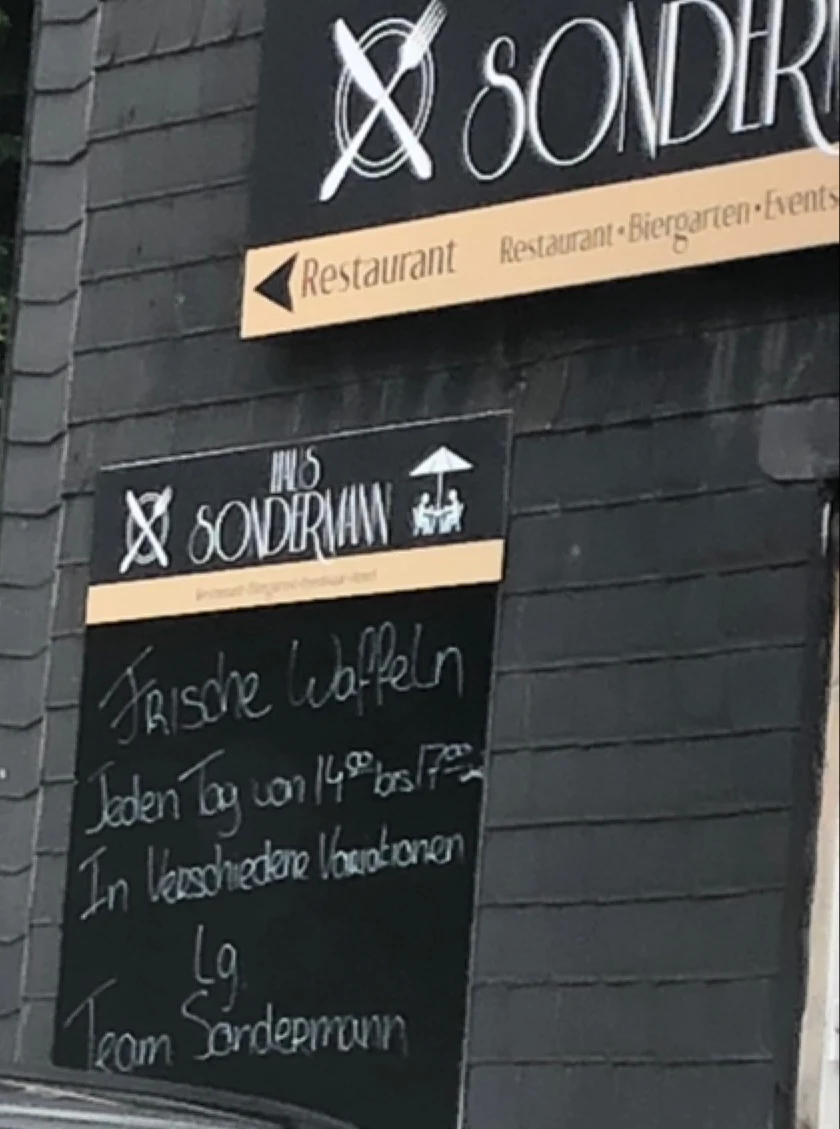 SONDER
Restaurant Restaurant•Biergarten•Events
HAUS
SONDERMANN
Frische Waffeln
Jeden Tag von 14⁰⁰ bis 17⁰⁰
In Verschiedene Variationen
Lg.
Team Sondermann